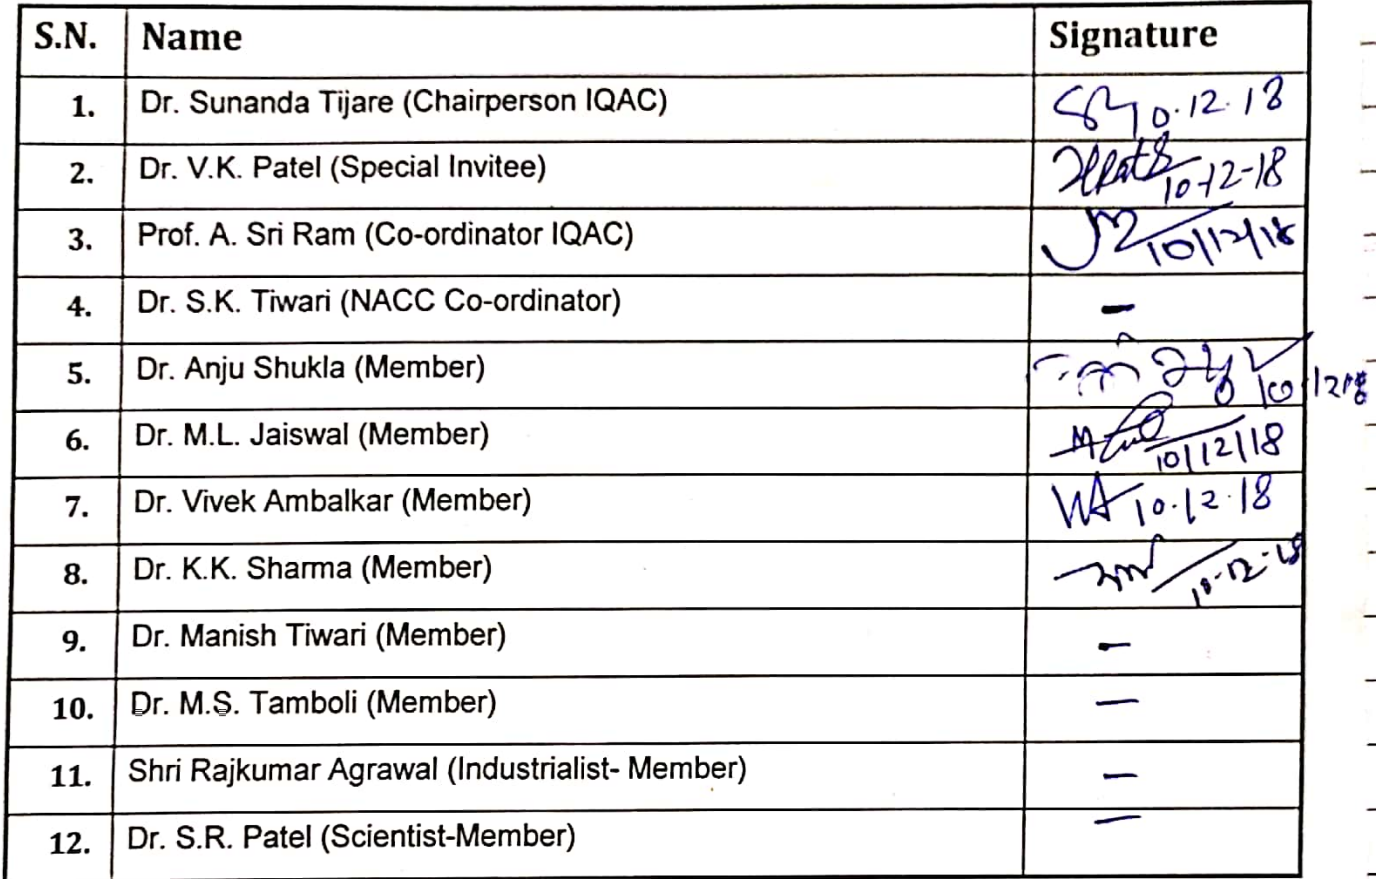 S.N. Name Signature
1. Dr. Sunanda Tijare (Chairperson IQAC) 10.12.18
2. Dr. V.K. Patel (Special Invitee) 10-12-18
3. Prof. A. Sri Ram (Co-ordinator IQAC) 10/12/18
4. Dr. S.K. Tiwari (NACC Co-ordinator) –
5. Dr. Anju Shukla (Member)
6. Dr. M.L. Jaiswal (Member) 10/12/18
7. Dr. Vivek Ambalkar (Member) VA 10.12.18
8. Dr. K.K. Sharma (Member) 10-12-18
9. Dr. Manish Tiwari (Member) –
10. Dr. M.S. Tamboli (Member) –
11. Shri Rajkumar Agrawal (Industrialist- Member) –
12. Dr. S.R. Patel (Scientist-Member) –